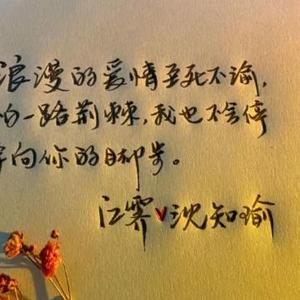 浪漫的爱情至死不渝,
一路荆棘,我也不会停
向你的脚步。
江霁♥沈知瑜